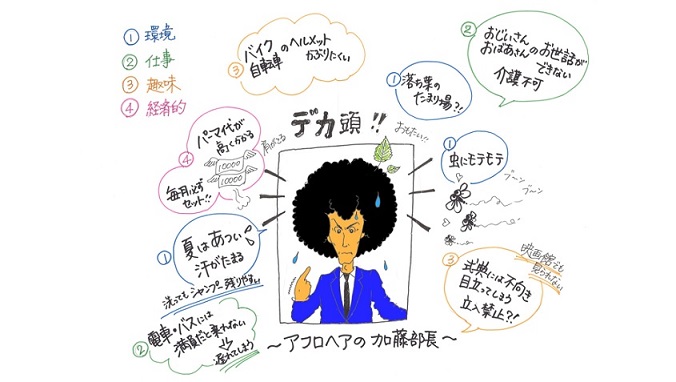 ① 環境
② 仕事
③ 趣味
④ 経済的
③
バイク
自転車
のヘルメット
かぶりにくい
②
おじいさん
おばあさん
のお世話が
できない
介護不可
①
落ち葉の
たまり場?!
デカ頭!!
おもたい!!
肩がこる
④
パーマ代が
高くかかる
10000
10000
毎月必ず
セット!!
①
虫にモテモテ
ブーン
ブーン
①
夏はあつい
汗がたまる
洗ってもシャンプー残りやすい
③
映画館でも
見られない
式典には不向き
目立ってしまう
立入禁止?!
②
電車・バスには
満員だと乗れない
遅れてしまう
～アフロヘアの加藤部長～